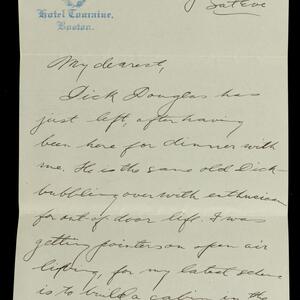 Hotel Touraine,
Boston.
Sat Eve
My dearest,
Dick Douglas has
just left, after having
been here for dinner with
me. He is the same old Dick-
bubbling over with enthusiasm
for out of door life. I was
getting pointers on open air
living, for my latest scheme
is to build a cabin in the